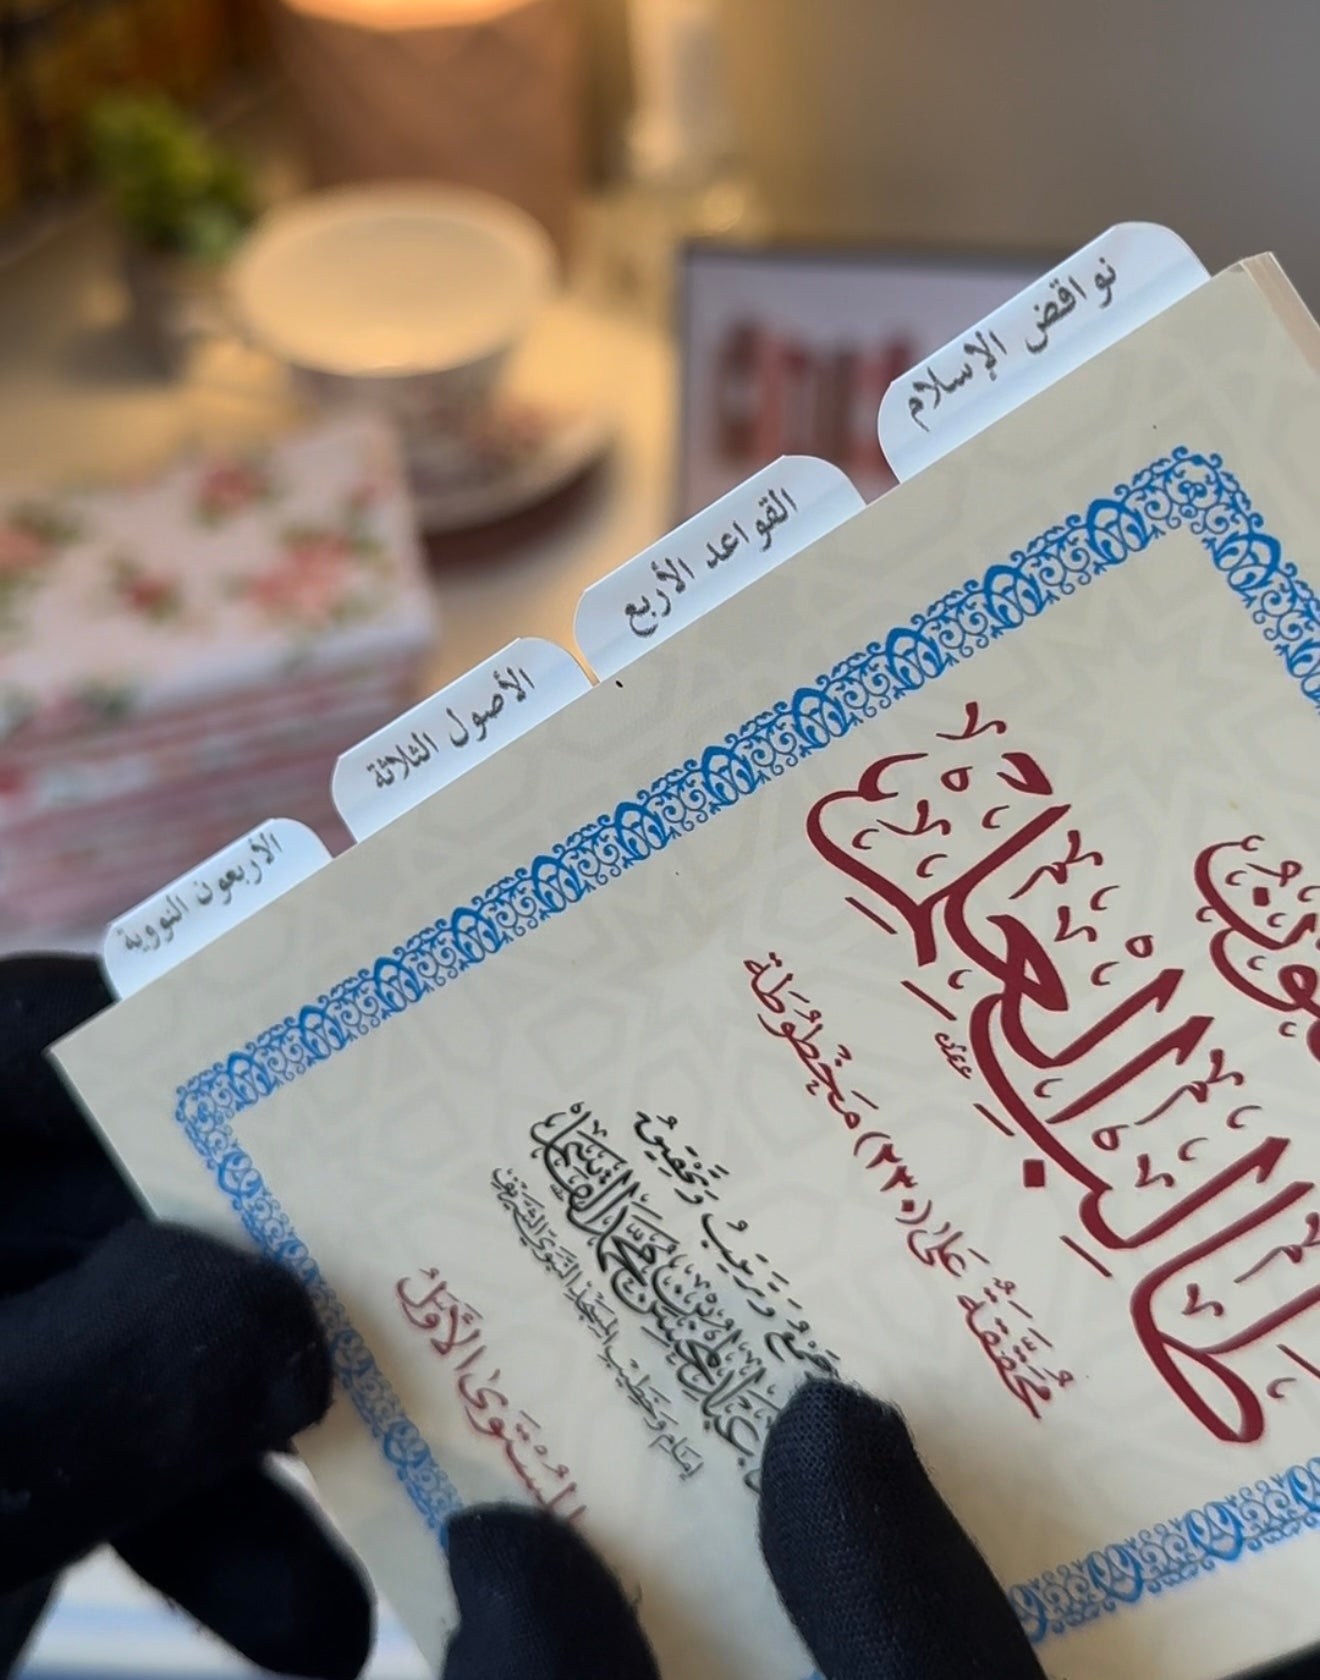 نواقض الإسلام
القواعد الأربع
الأصول الثلاثة
الأربعون النووية
طالب العلم
محققة على (٢٣٠) مخطوطة
جمع وترتيب وتحقيق
عبد المحسن بن محمد القاسم
إمام وخطيب المسجد النبوي الشريف
المستوى الأول